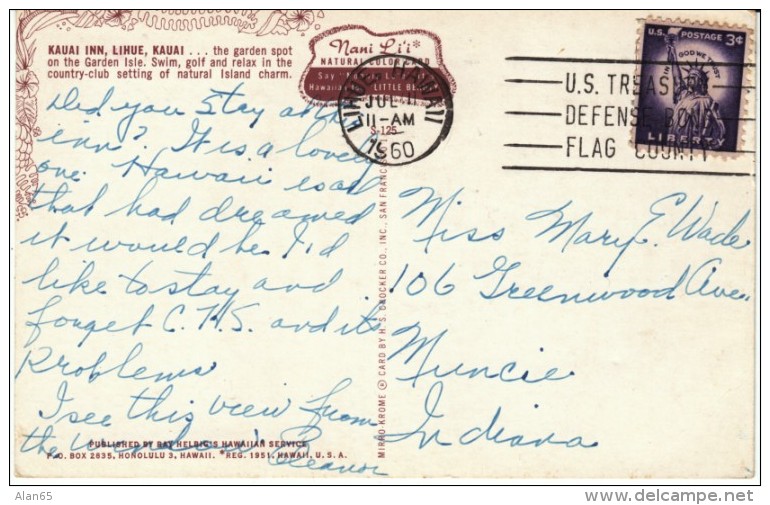 KAUAI INN, LIHUE, KAUAI . . . the garden spot
on the Garden Isle. Swim, golf and relax in the
country-club setting of natural Island charm.
Nani Li'i*
NATURAL COLOR CARD
Say "
Hawaiian LITTLE
S-125
LIHUE, HAWAII
JUL 11
11-AM
1960
U.S. POSTAGE 3¢
IN GOD WE TRUST
LIBERTY
U.S. TREASURY
DEFENSE BOND
FLAG COUNTY
Did you stay at the
inn? It is a lovely
one. Hawaii is all
that had dreamed
it would be. I'd
like to stay and
forget C.H.S. and its
problems
I see this view from
the window. Eleanor
Miss Mary E. Wade
106 Greenwood Ave.
Muncie
Indiana
MIRRO-KROME ® CARD BY H. S. CROCKER CO., INC., SAN FRANC
PUBLISHED BY RAY HELBIG'S HAWAIIAN SERVICE
P.O. BOX 2835, HONOLULU 3, HAWAII. *REG. 1951, HAWAII, U. S. A.
Alan65
delcampe.net